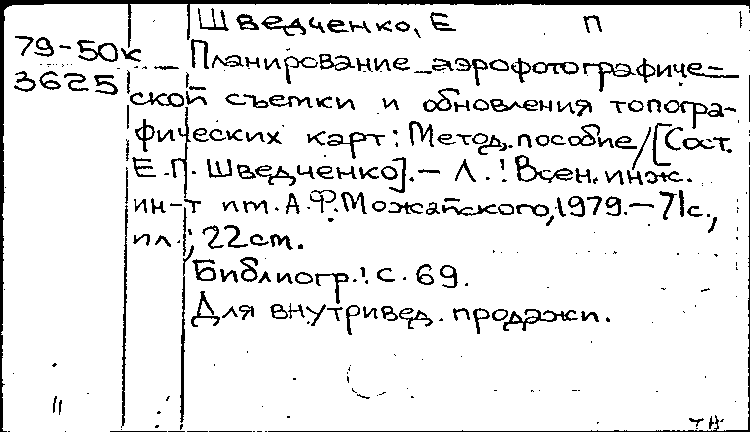 Шведченко, Е П
79-50к
3625
Планирование аэрофотографиче-
ской съемки и обновления топогра-
фических карт: Метод. пособие/[Сост.
Е.П. Шведченко].– Л.: Воен. инж.
ин-т им. А.Ф. Можайского, 1979.– 71с.,
ил.; 22см.
Библиогр.: с. 69.
Для внутривед. продажи.